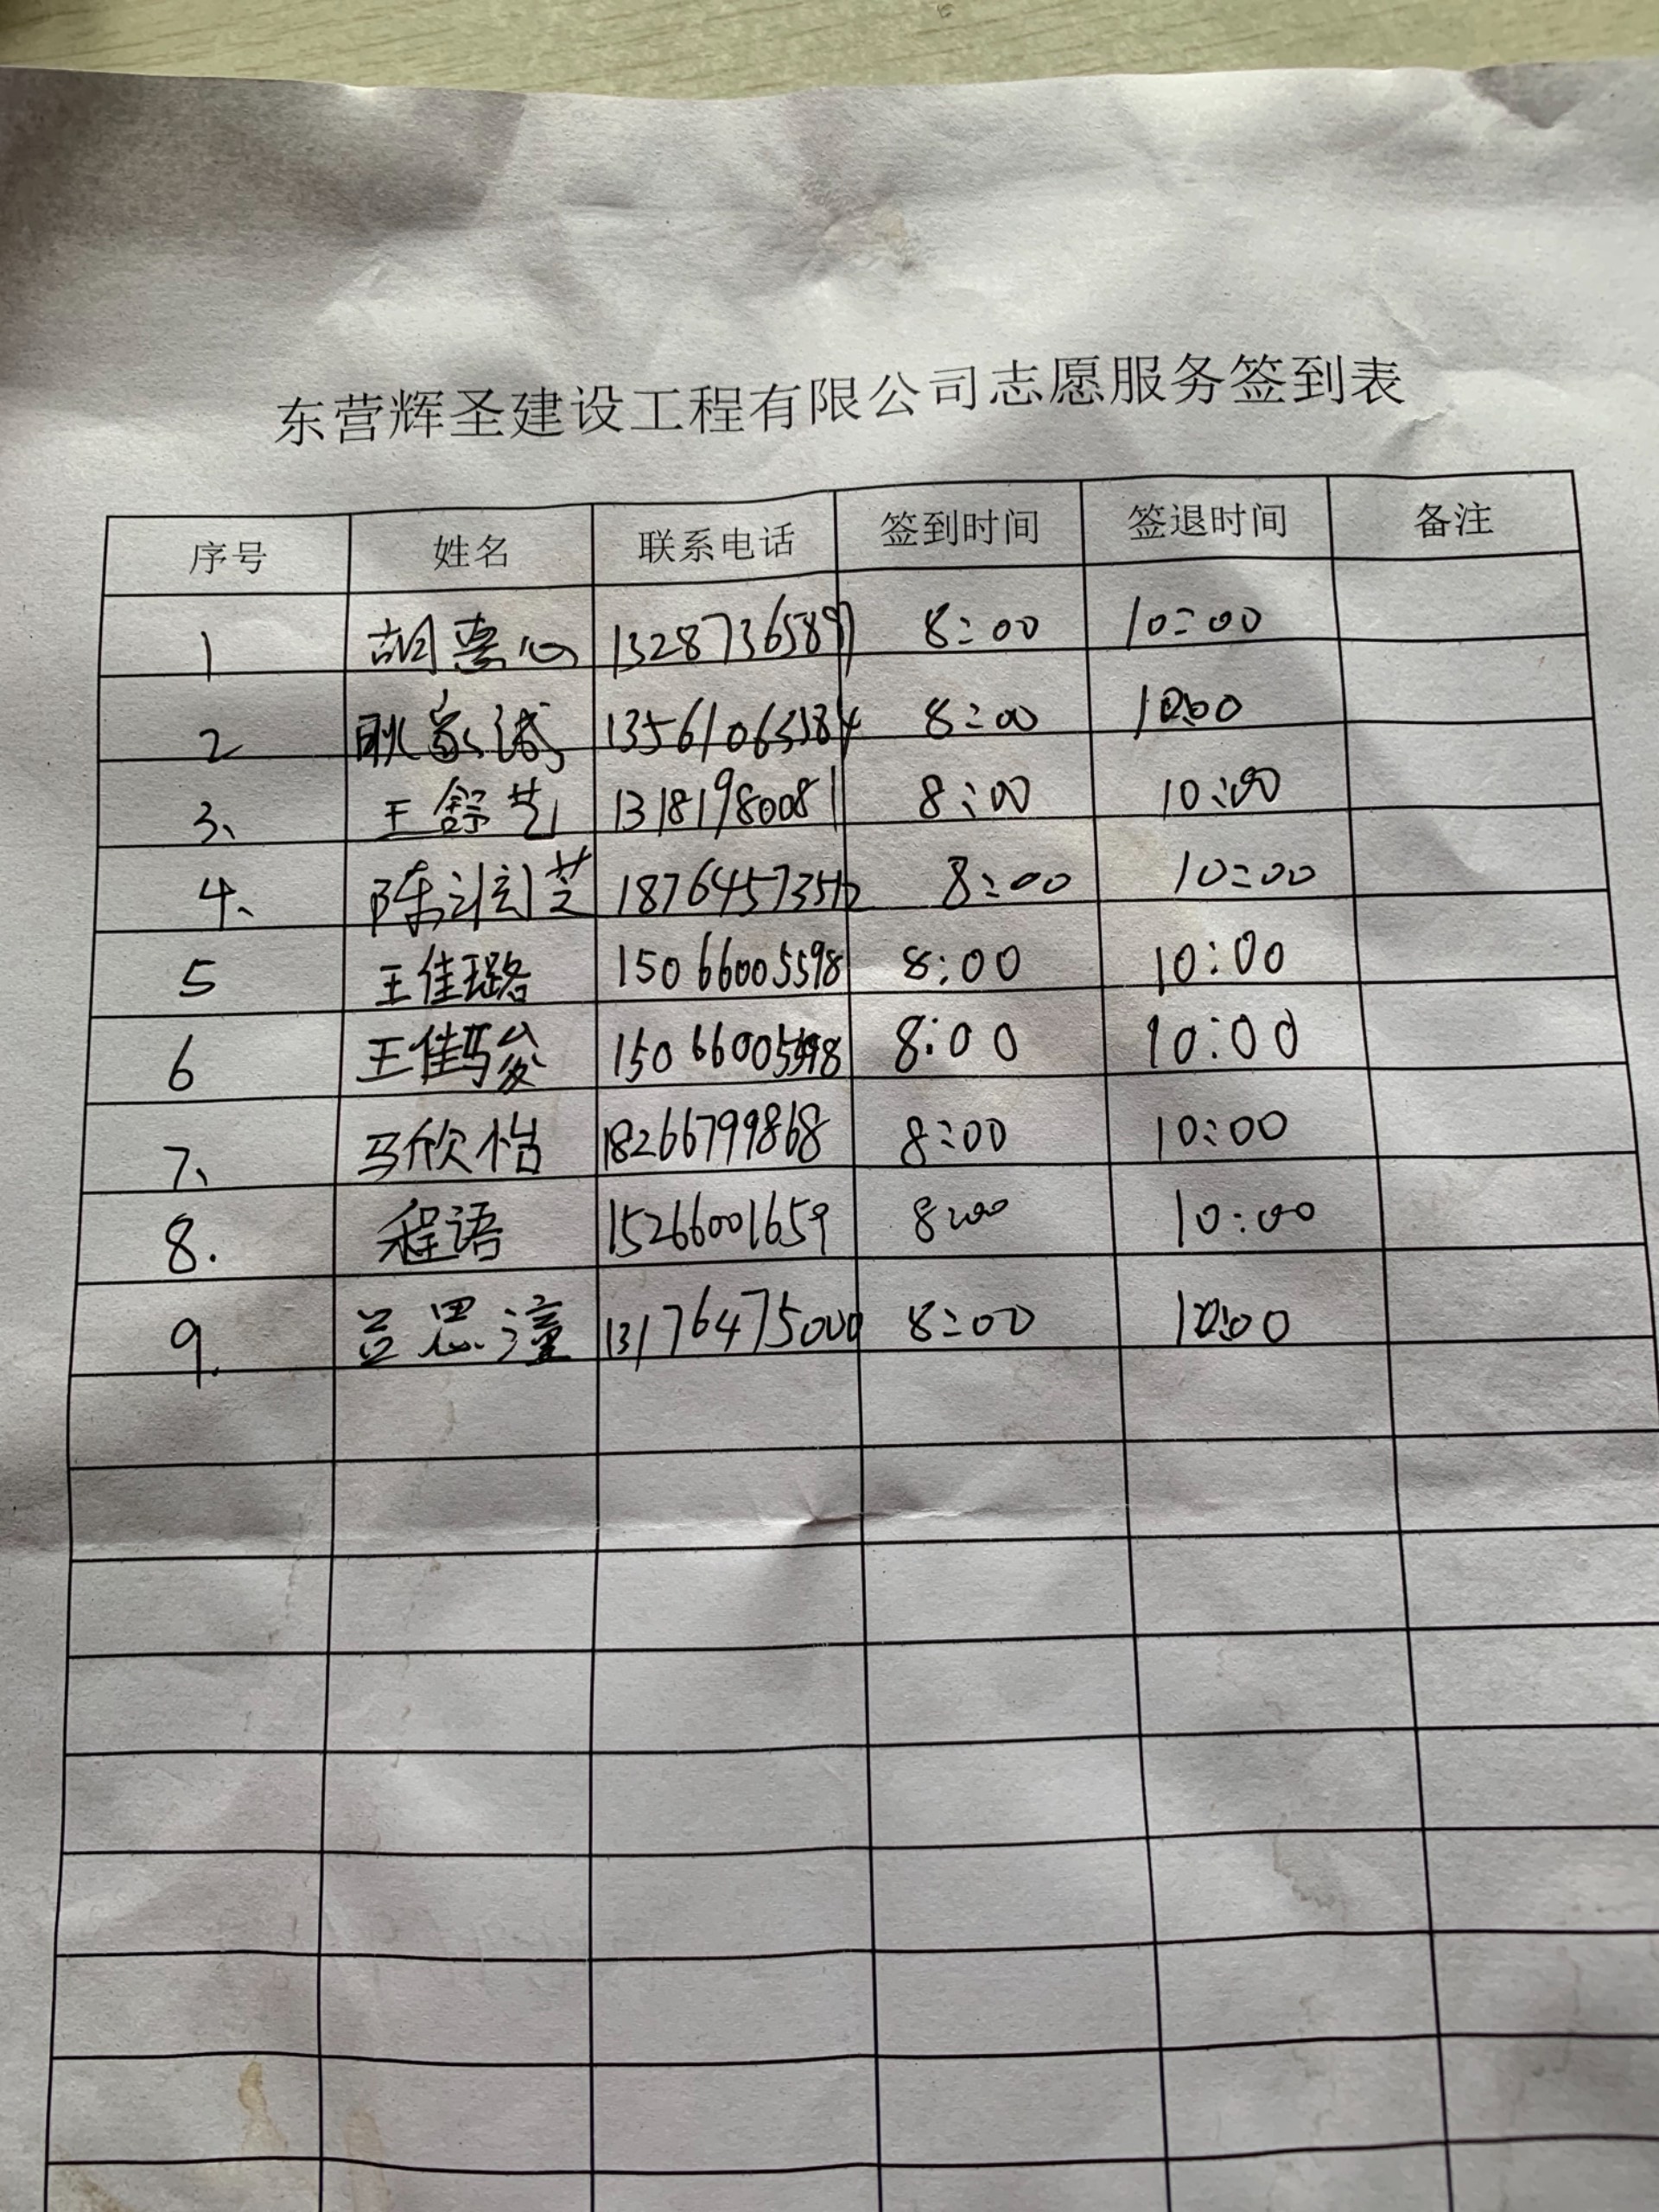 东营辉圣建设工程有限公司志愿服务签到表
序号 姓名 联系电话 签到时间 签退时间 备注
1 胡惠心 13287365897 8:00 10:00
2 耿家 8:00 10:00
3、 王舒艺 13181980081 8:00 10:00
4、 陈 芝 8:00 10:00
5 王佳璐 15066005598 8:00 10:00
6 王佳骏 15066005598 8:00 10:00
7、 马欣怡 18266799868 8:00 10:00
8. 程语 15266001659 8:00 10:00
9. 吕思潼 13176475000 8:00 10:00